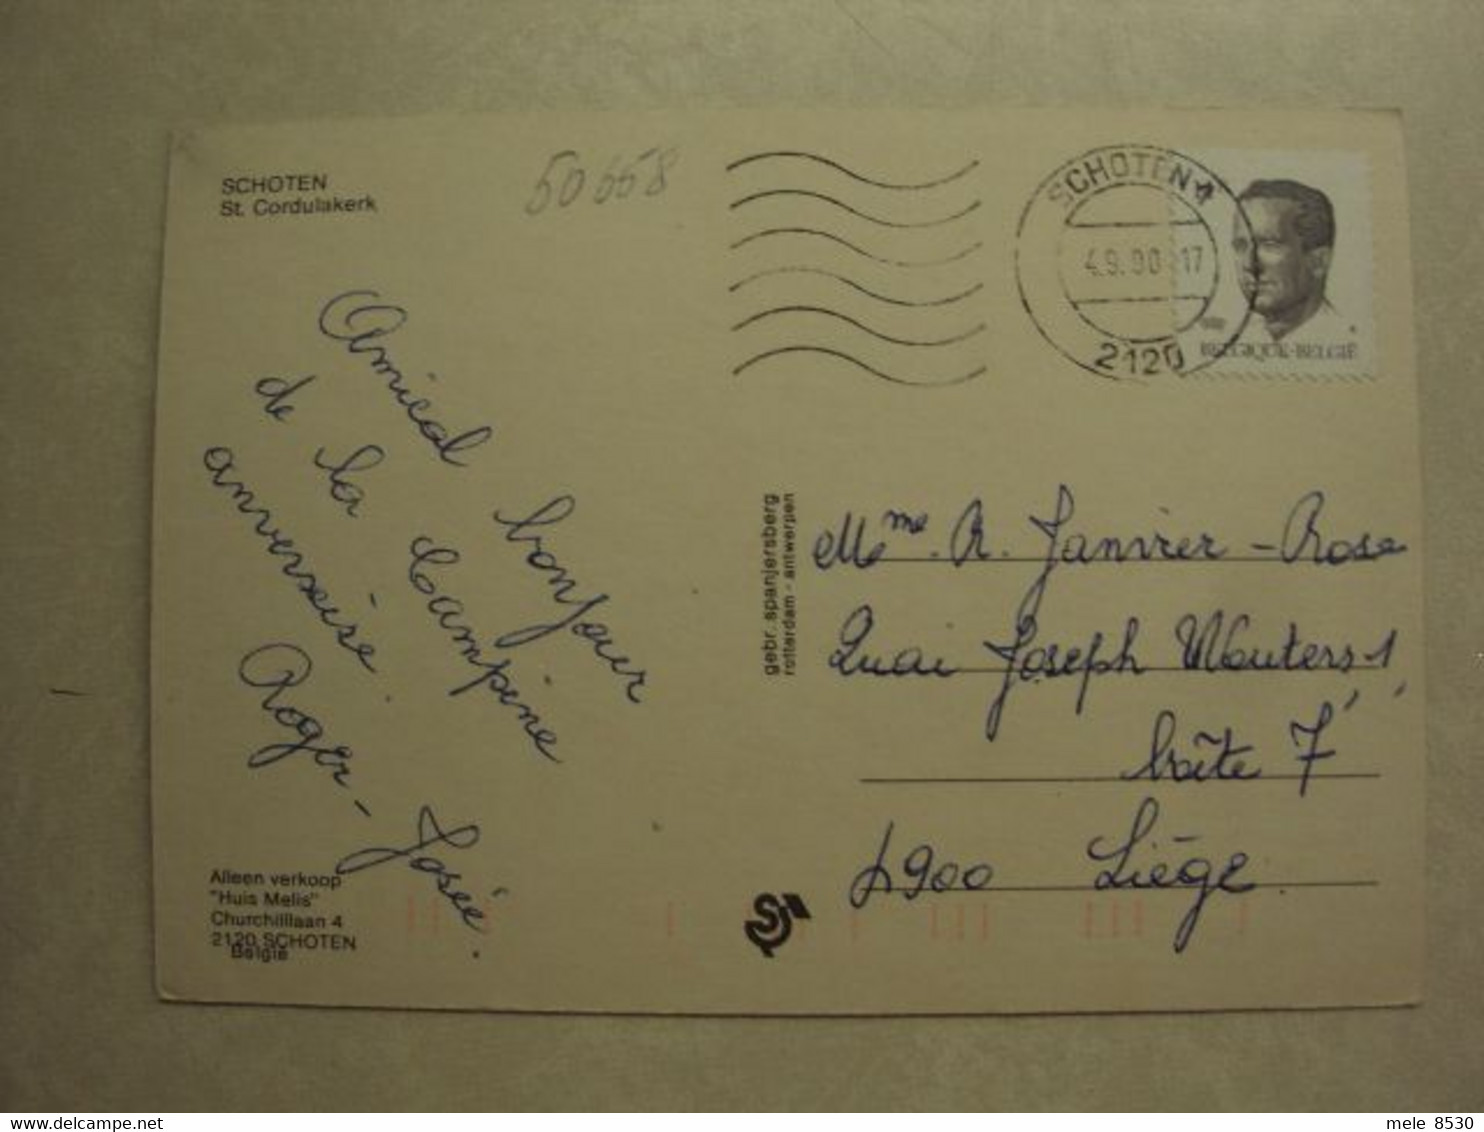 SCHOTEN
St. Cordulakerk
50658
SCHOTEN 1
4.9.90 17
2120
BELGIQUE-BELGIË
Amical bonjour
de la Campine
anversoise.
Roger - Josée.
gebr. spanjersberg
rotterdam - antwerpen
Mme. R. Janvier - Rose
Quai Joseph Wouters 1
boîte 7
4900 Liége
Alleen verkoop
"Huis Melis"
Churchilllaan 4
2120 SCHOTEN
België
mele 8530